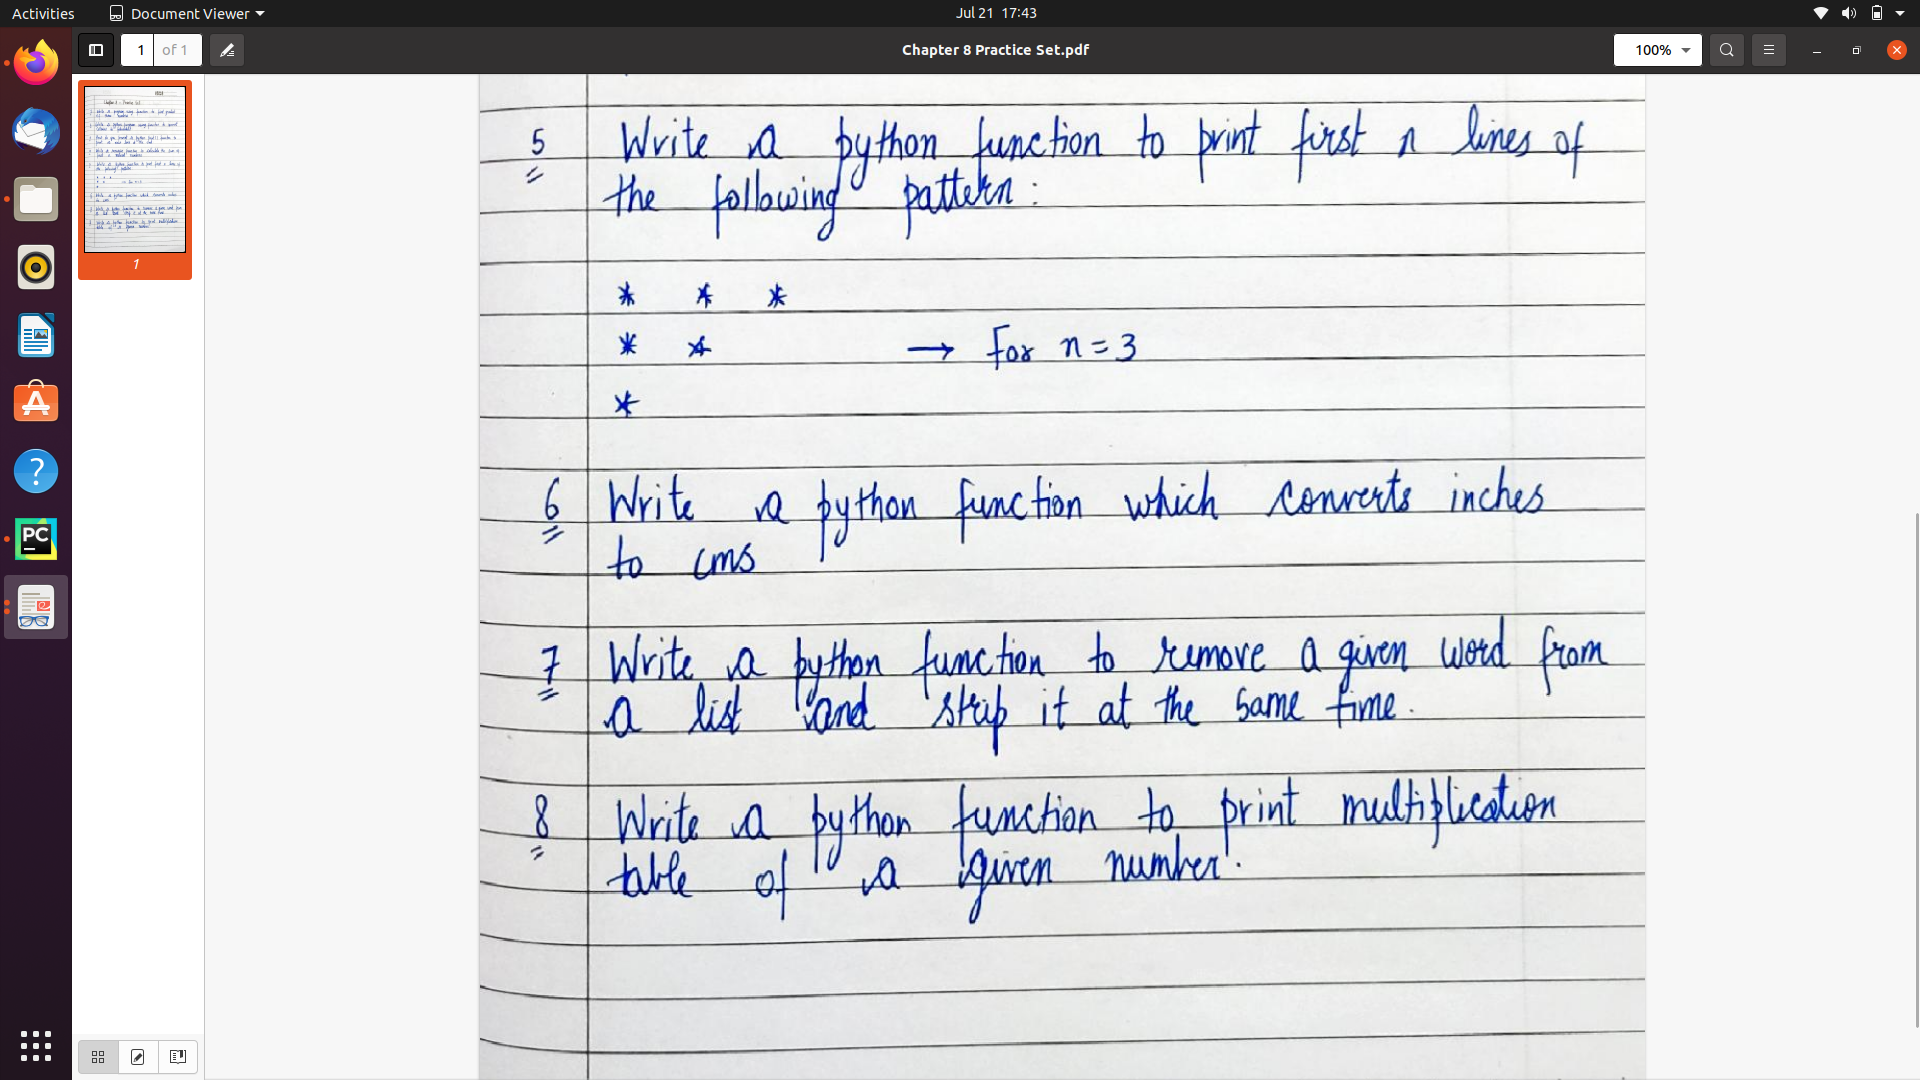 Activities
Document Viewer
Jul 21 17:43
1 of 1
Chapter 8 Practice Set.pdf
100%
1
5 Write a python function to print first n lines of
the following pattern :
* * *
* * → For n = 3
*
6 Write a python function which converts inches
to cms
7 Write a python function to remove a given word from
a list and strip it at the same time.
8 Write a python function to print multiplication
table of a given number.
PC